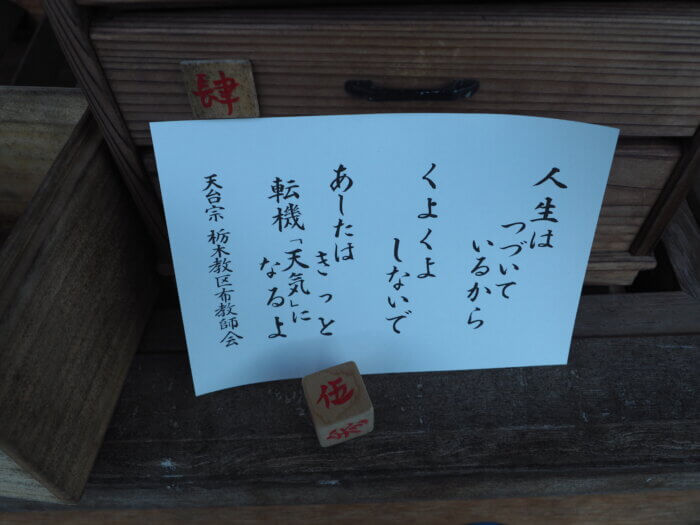 肆
人生は
つづいて
いるから
くよくよ
しないで
あしたは
きっと
転機「天気」に
なるよ
天台宗 栃木教区布教師会
伍